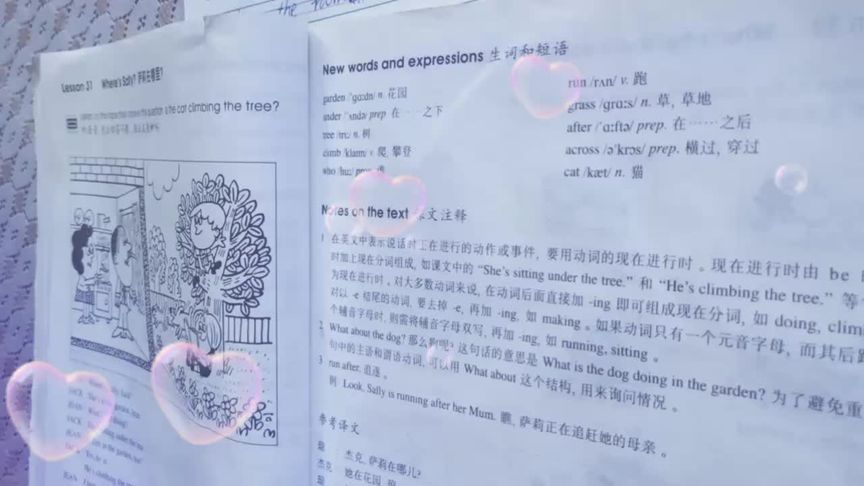 the
Lesson 31 Where's Sally? 萨莉在哪里?
the cat climbing the tree?
New words and expressions 生词和短语
garden /'gɑ:dn/ n. 花园
under /'ʌndə/ prep. 在……之下
tree /tri:/ n. 树
climb /klaim/ v. 爬, 攀登
who /hu:/ 谁
run /rʌn/ v. 跑
grass /grɑ:s/ n. 草, 草地
after /'ɑ:ftə/ prep. 在……之后
across /ə'krɔs/ prep. 横过, 穿过
cat /kæt/ n. 猫
Notes on the text 课文注释
1 在英文中表示说话时正在进行的动作或事件, 要用动词的现在进行时。现在进行时由 be
时加上现在分词组成, 如课文中的 “She's sitting under the tree.” 和 “He's climbing the tree.” 等
为现在进行时。对大多数动词来说, 在动词后面直接加 -ing 即可组成现在分词, 如 doing,
对以 -e 结尾的动词, 要去掉 -e, 再加 -ing, 如 making。如果动词只有一个元音字母, 而其后
个辅音字母时, 则需将辅音字母双写, 再加 -ing, 如 running, sitting。
2 What about the dog? 那么狗呢? 这句话的意思是 What is the dog doing in the garden? 为了避免重
句中的主语和谓语动词, 可以用 What about 这个结构, 用来询问情况。
3 run after, 追逐。
例 Look, Sally is running after her Mum. 瞧, 萨莉正在追赶她的母亲。
参考译文
杰克, 萨莉在哪儿?
杰克 她在花园